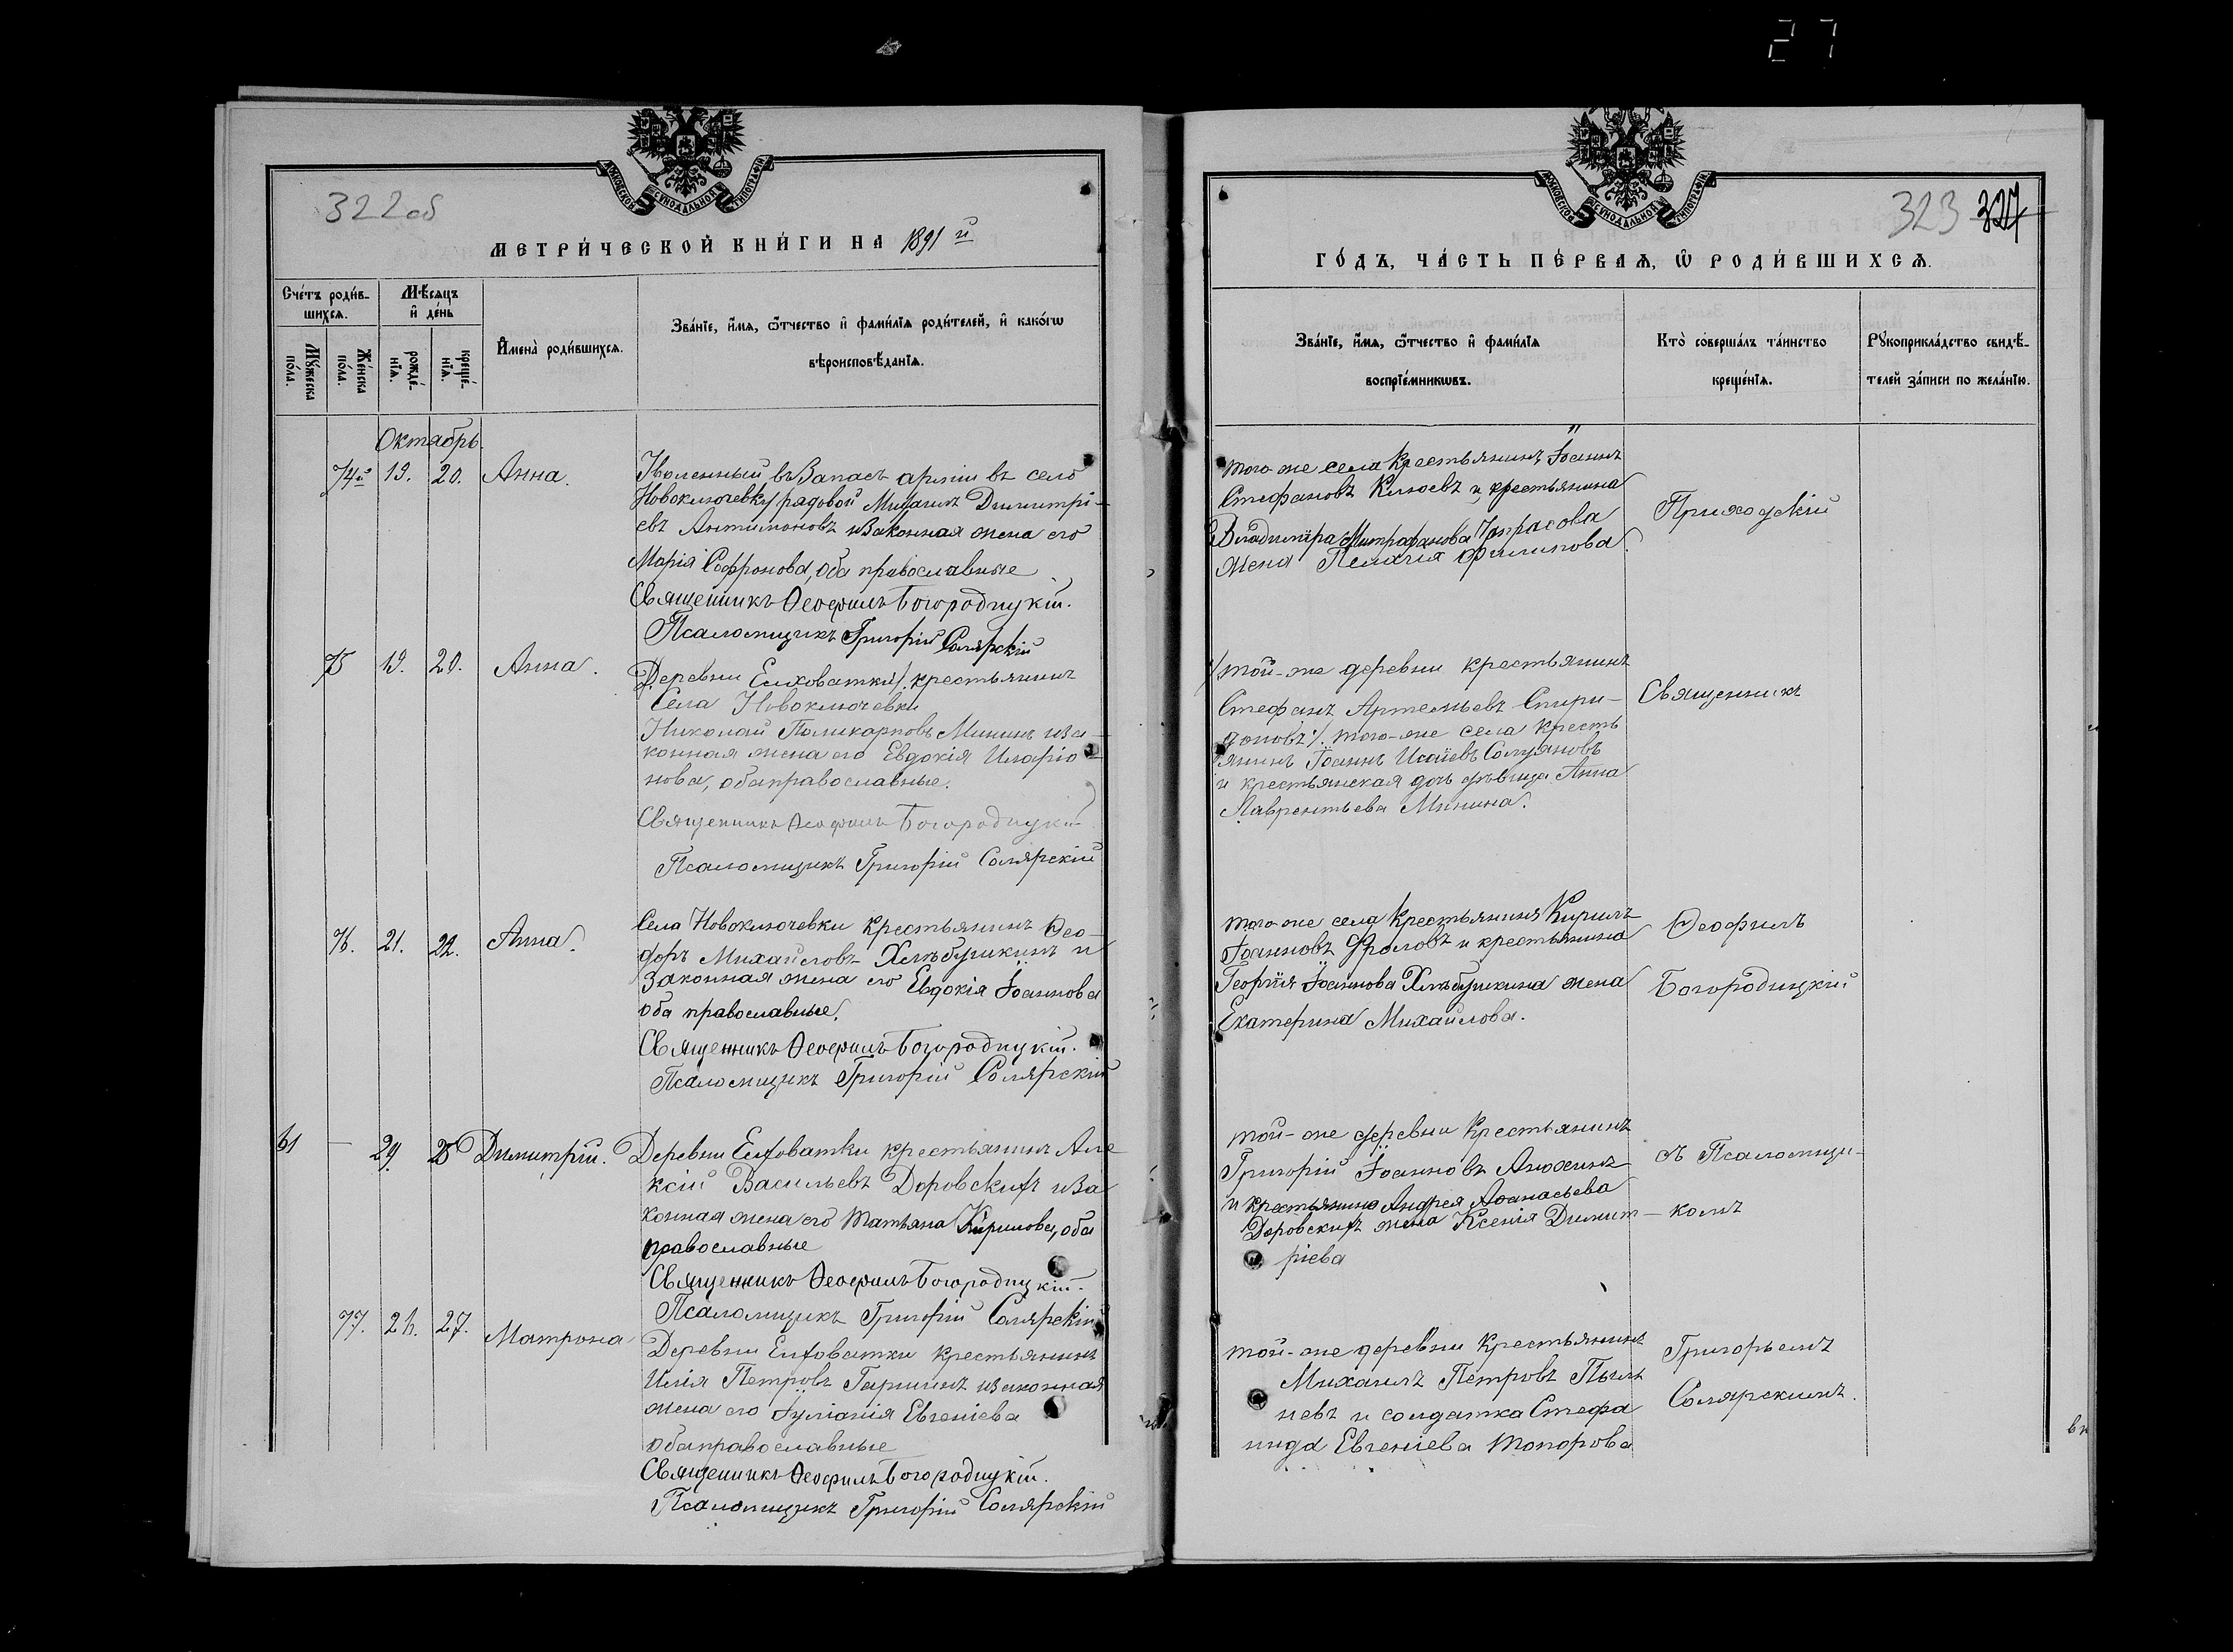 27
322об
МОСКОВСКОЙ СѴНОДАЛЬНОЙ ТИПОГРАФІИ
МЕТРИ́ЧЕСКОЙ КНИ́ГИ НА 1891 й
Сче́тъ роди́в-
шихсѧ.
Мѣ́сѧцъ
и҆ де́нь
Мꙋ́жеска
по́ла.
Же́нска
по́ла.
рожде́-
нїѧ.
креще́-
нїѧ.
И҆мена̀ роди́вшихсѧ.
Зва́нїе, и҆́мѧ, ѻ҆́тчество и҆ фами́лїѧ роди́телей, и҆ како́гѡ
вѣроисповѣ́данїѧ.
Октябрь.
74й 19. 20. Анна.
Уволенный въ Запасъ арміи въ село
Новоключевку рядовой Михаилъ Димитрі-
евъ Антимоновъ и Законная жена его
Марія Софронова, оба православные
Священникъ Ѳеофилъ Богородицкій.
Псаломщикъ Григорій Солярскій
75 19. 20. Анна.
Деревни Елховатки/. крестьянинъ
Села Новоключевки
Николай Поликарповъ Мининъ и за-
конная жена его Евдокія Иларіо-
нова, оба православные.
Священникъ Ѳеофилъ Богородицкій
Псаломщикъ Григорій Солярскій
76. 21. 22. Анна.
Села Новоключевки крестьянинъ Ѳео-
доръ Михайловъ Хлѣбушкинъ и
Законная жена его Евдокія Іоаннова
оба православные.
Священникъ Ѳеофилъ Богородицкій.
Псаломщикъ Григорій Солярскій
61 — 24. 25 Димитрій.
Деревни Елховатки крестьянинъ Але-
ксій Васильевъ Доровскихъ и За-
конная жена его Татьяна Кирилова, оба
православные
Священникъ Ѳеофилъ Богородицкій.
Псаломщикъ Григорій Солярскій
77. 26. 27. Матрона
Деревни Елховатки крестьянинъ
Илія Петровъ Гаршинъ и законная
жена его Іуліанія Евгеніева
оба православные
Священникъ Ѳеофилъ Богородицкій.
Псаломщикъ Григорій Солярскій
323 327
МОСКОВСКОЙ СѴНОДАЛЬНОЙ ТИПОГРАФІИ
ГО́ДЪ, ЧА́СТЬ ПЕ́РВАѦ, Ѡ҆ РОДИ́ВШИХСѦ.
Зва́нїе, и҆́мѧ, ѻ҆́тчество и҆ фами́лїѧ
воспрїе́мникѡвъ.
Кто̀ соверша́лъ та́инство
креще́нїѧ.
Рꙋкоприкла́дство свидѣ́-
телей за́писи по жела́нїю.
того-же села Крестьянинъ Іоаннъ
Стефановъ Клюевъ и крестьянина
Владиміра Митрофанова Тарасова
жена Пелагія Филипова.
Приходскій
/той-же деревни крестьянинъ
Стефанъ Артемьевъ Спири-
доновъ/. того-же села кресть
янинъ Іоаннъ Исаіевъ Солуяновъ
и крестьянская дочь дѣвица Анна
Лаврентьева Минина.
Священникъ
того-же села Крестьянинъ Кирилъ
Іоанновъ Фроловъ и крестьянина
Георгія Іоаннова Хлѣбушкина жена
Екатерина Михайлова.
Ѳеофилъ
Богородицкій
той-же деревни Крестьянинъ
Григорій Іоанновъ Алюхинъ
и крестьянина Андрея Аѳанасьева
Доровскихъ жена Ксенія Димит-
ріева
съ Псаломщи-
комъ
той-же деревни Крестьянинъ
Михаилъ Петровъ Пыль
невъ и солдатка Стефа
нида Евгеніева Топорова
Григорьемъ
Солярскимъ.